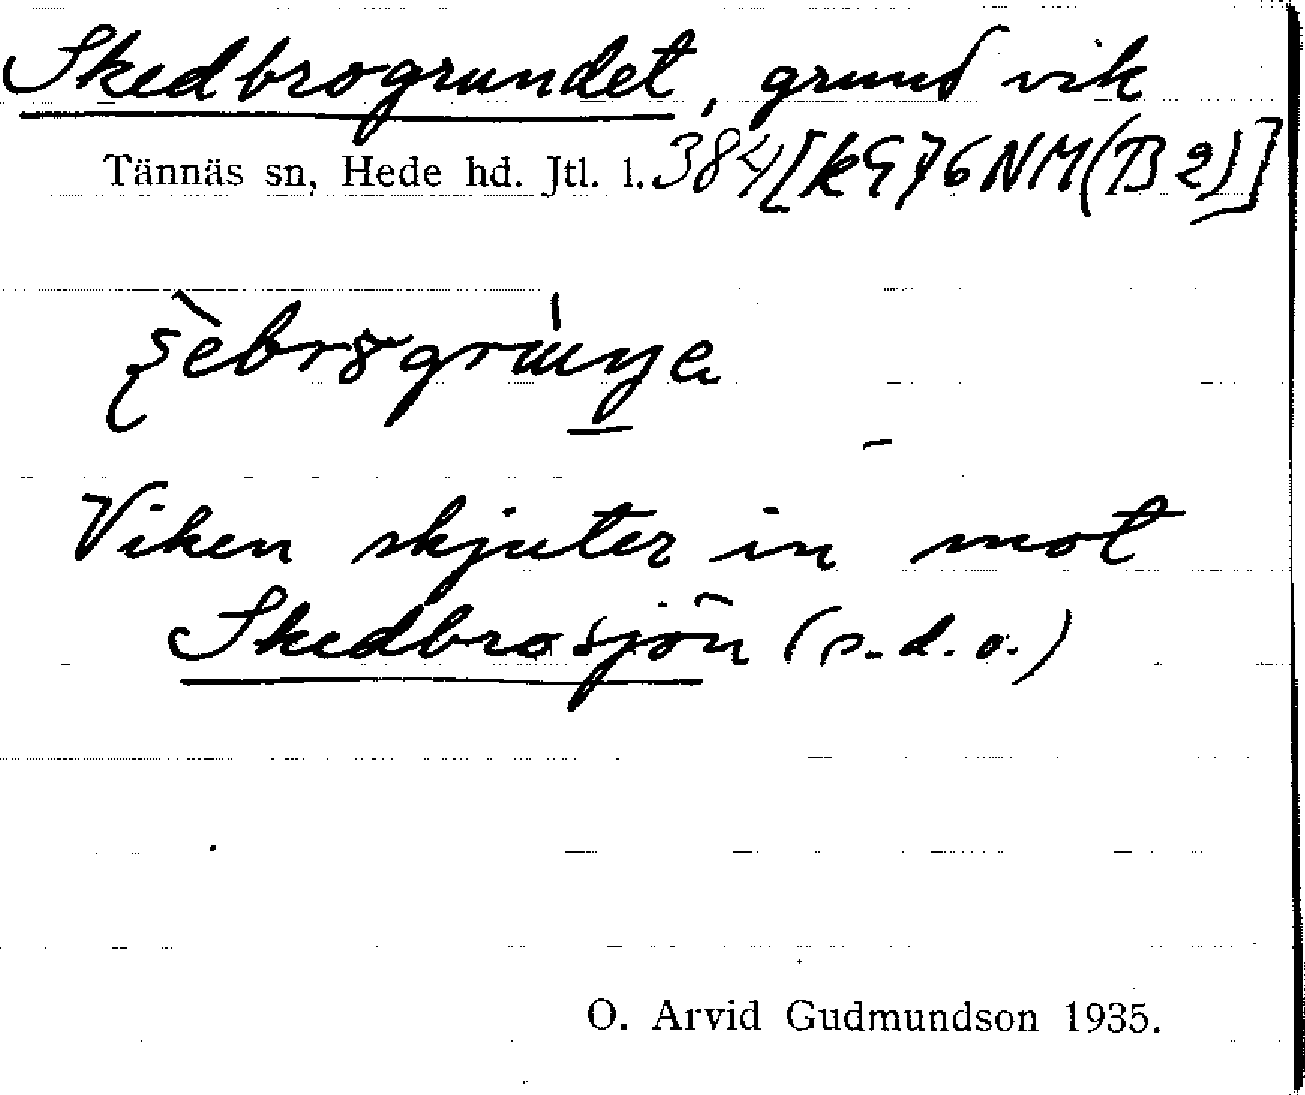 Skedbrogrundet, grund vik
Tännäs sn, Hede hd. Jtl. l. 384 [k976NM(B2)]
Viken skjuter in mot
Skedbrosjön (s.d.o.)
O. Arvid Gudmundson 1935.